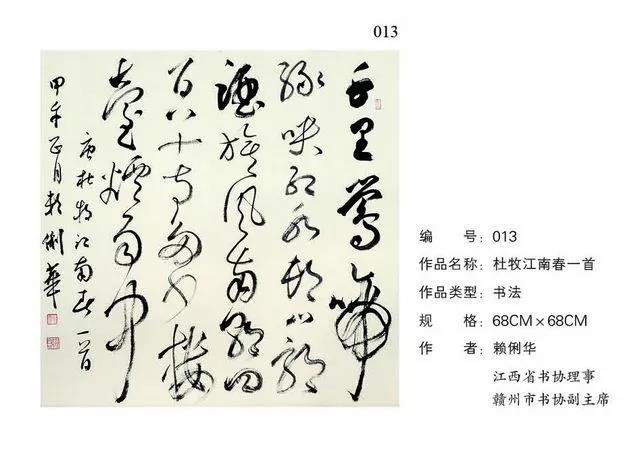 013
千里鶯啼
綠映紅水村山郭
酒旗風南朝四
百八十寺多少樓
臺煙雨中
唐杜牧江南春一首
甲午正月賴俐華
编 号：013
作品名称：杜牧江南春一首
作品类型：书法
规 格：68CM×68CM
作 者：赖俐华
江西省书协理事
赣州市书协副主席